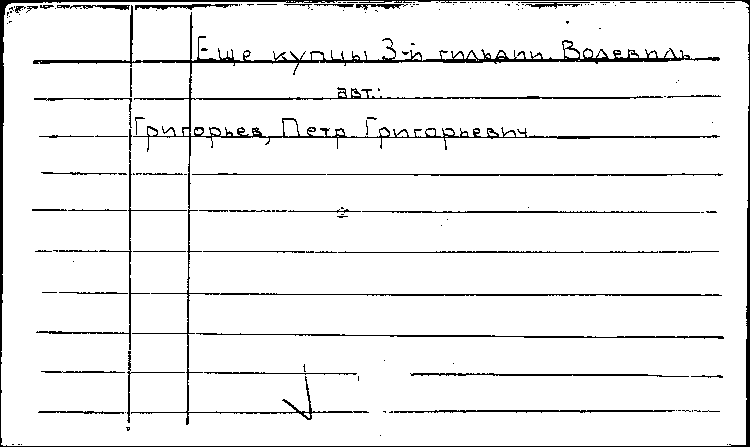 Еще купцы 3-й гильдии. Водевиль
авт.:
Григорьев, Петр Григорьевич